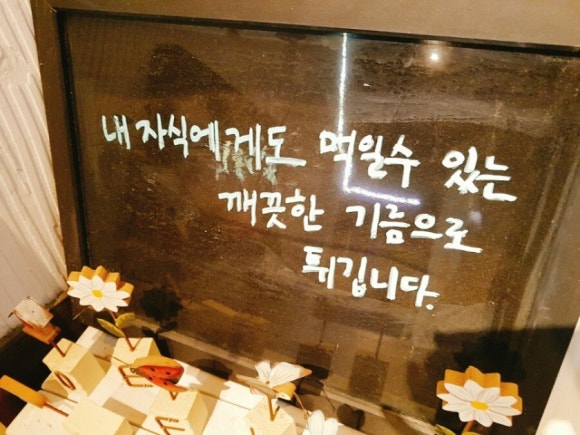 내 자식에게도 먹일수 있는
깨끗한 기름으로
튀깁니다.